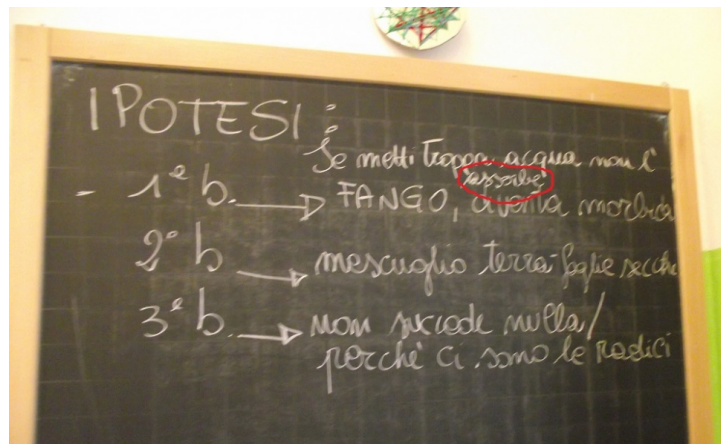 IPOTESI:
Se metti troppa acqua non l'
"assorbe"
- 1ª b. → FANGO, diventa morbida
2ª b → mescuglio terra-foglie secche
3ª b. → non succede nulla/
perchè ci sono le radici